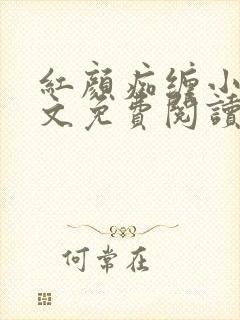 紅顏痴缠小
文免費閱讀
何常在